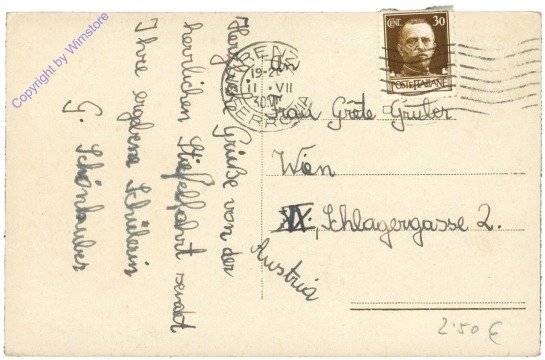 Herzliche Grüße von der
herrlichen Stiefelfahrt sendet
Ihre ergebene Schülerin
G. Schönhuber
An
Frau Grete Gruber
Wien
IX., Schlagergasse 2.
Austria
CENT. 30
POSTE ITALIANE
19-20
11 . VII
FERROVIA
2.50 €
Copyright by Wimstore